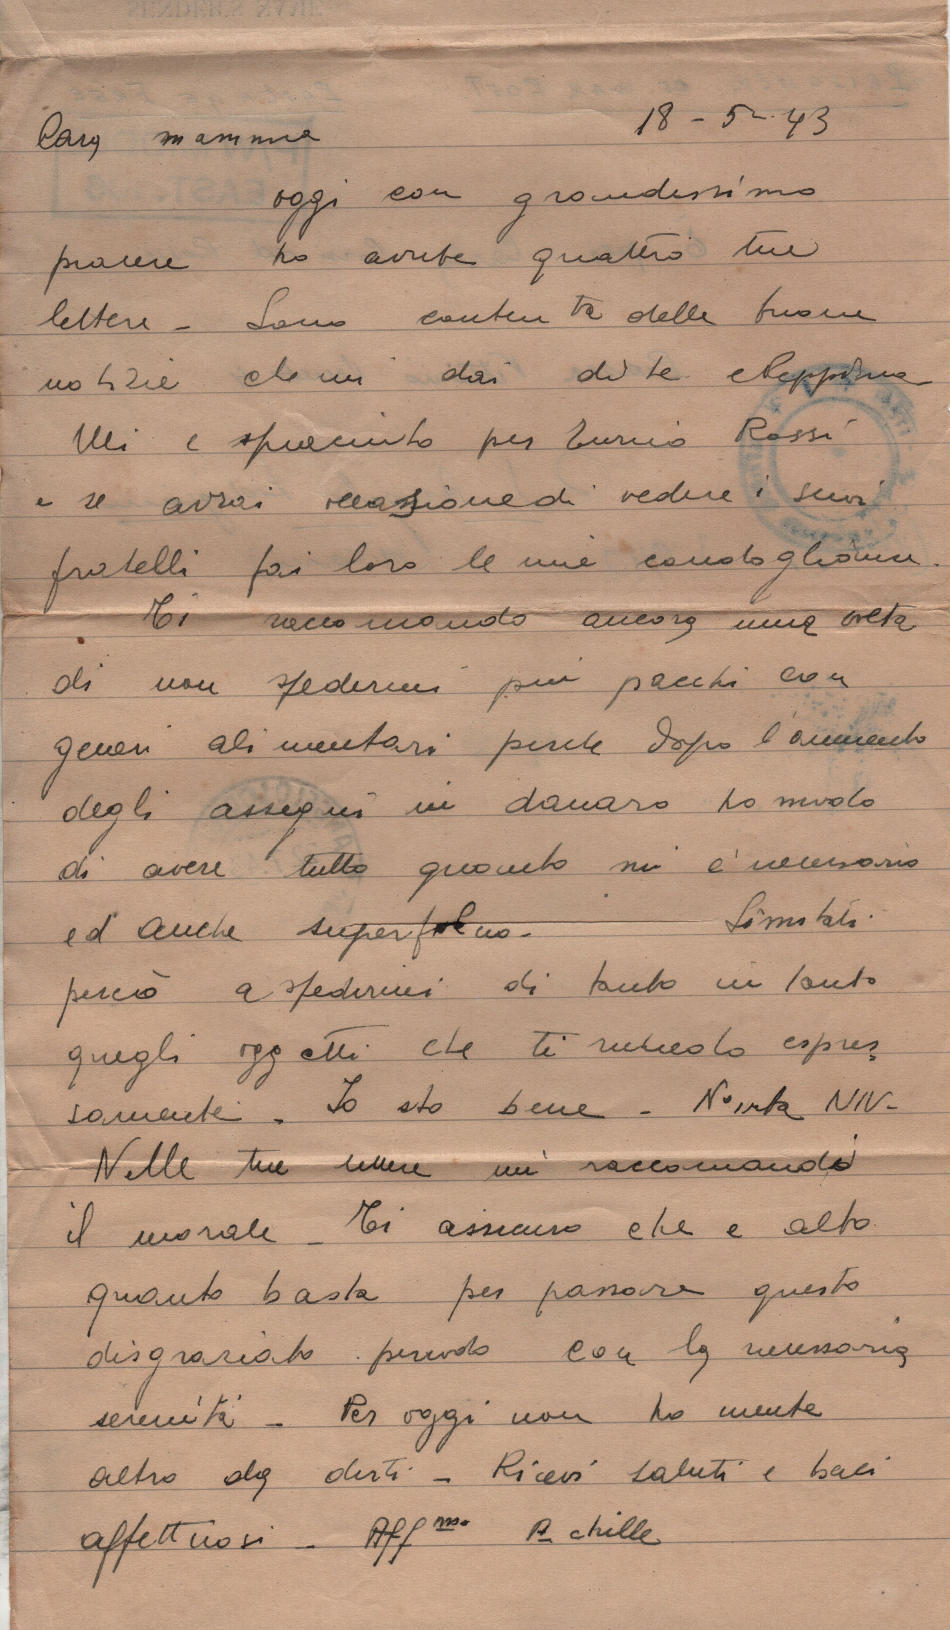 Cara mamma 18-5-43
oggi con grandissimo
piacere ho avute quattro tue
lettere - Sono contento delle buone
notizie che mi dai di te e Peppina
Mi è spiaciuto per Rossi
e se avrai occasione di vedere i suoi
fratelli fai loro le mie condoglianze.
Ti raccomando ancora una volta
di non spedirmi più pacchi con
generi alimentari perche dopo l'aumento
degli assegni in danaro ho modo
di avere tutto quanto mi è necessario
ed anche superfluo - Limitati
perciò a spedirmi di tanto in tanto
quegli oggetti che ti richiedo espres
samente - Io sto bene -
Nelle tue lettere mi raccomandi
il morale - Ti assicuro che e alto
quanto basta per passare questo
disgraziato periodo con la necessaria
serenità - Per oggi non ho niente
altro da dirti - Ricevi saluti e baci
affettuosi - Aff.mo Achille